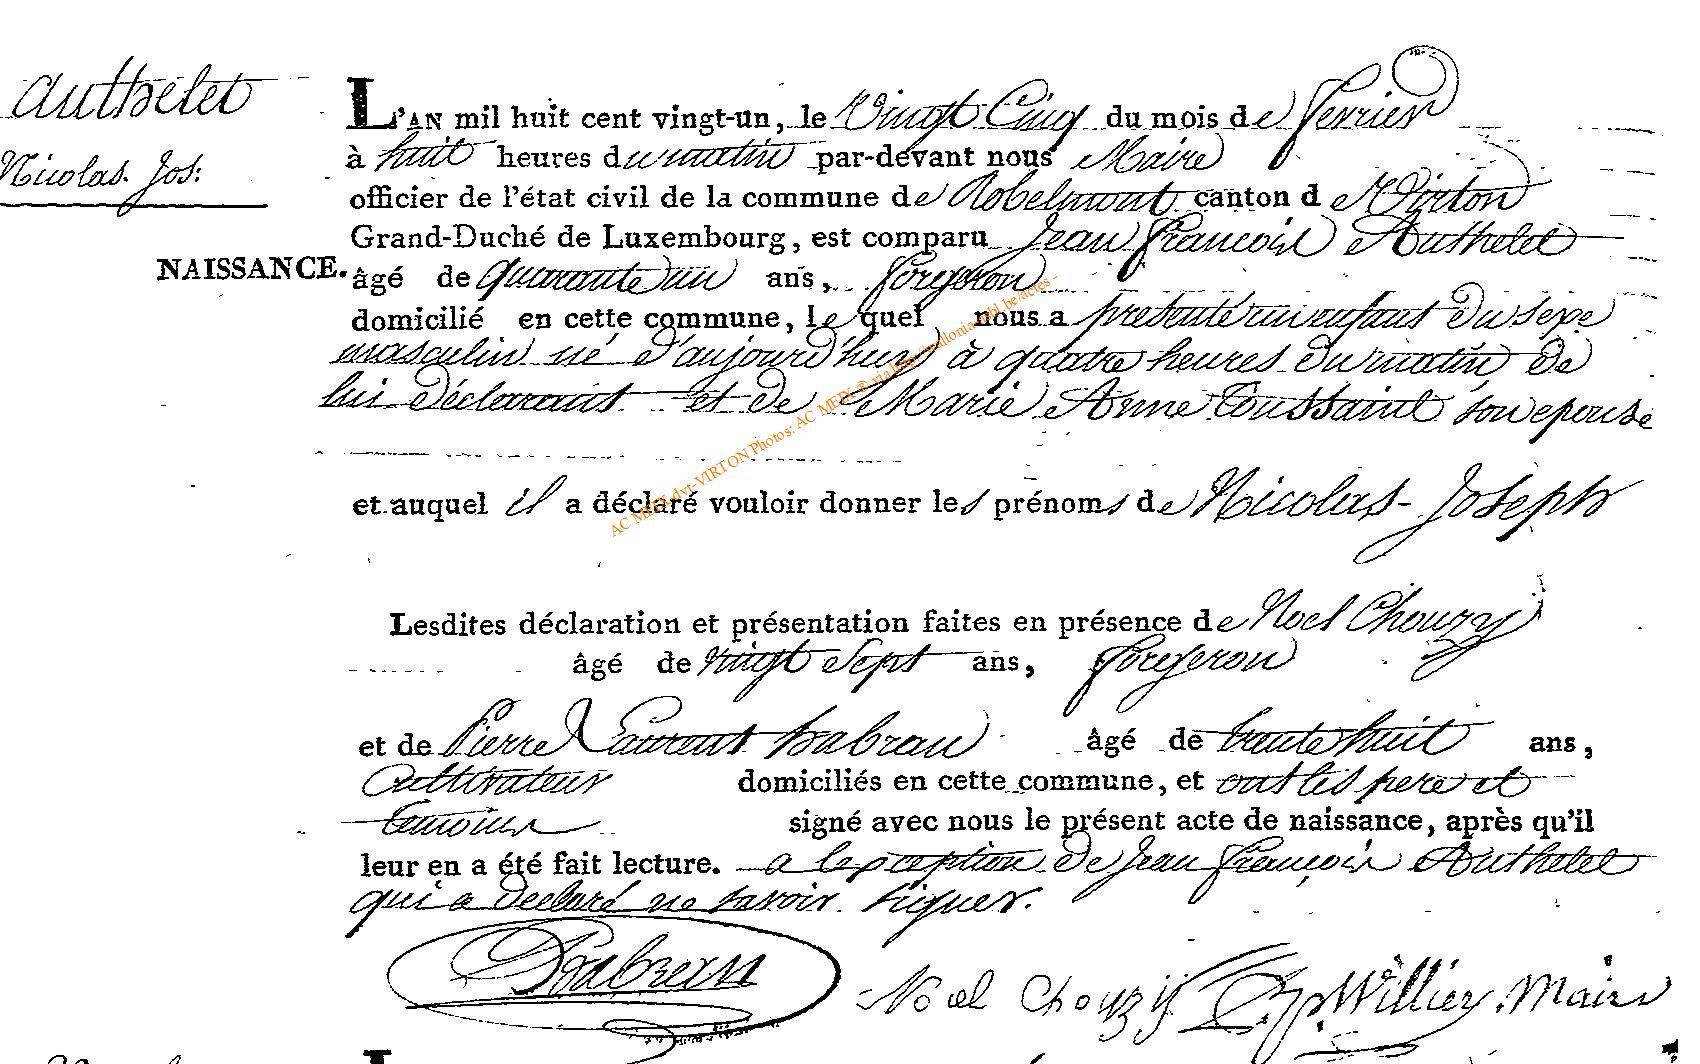 Authelet
Nicolas. Jos:
NAISSANCE.
L'AN mil huit cent vingt-un, le Vingt Cinq du mois de fevrier
à huit heures du matin par-devant nous Maire
officier de l'état civil de la commune de Robelmont canton de Virton
Grand-Duché de Luxembourg, est comparu Jean françois Authelet
âgé de quarante un ans, forgeron
domicilié en cette commune, le quel nous a presenté un enfant du sexe
masculin né d'aujourd'huy à quatre heures du matin de
lui déclarant et de Marie Anne Toussaint son epouse
et auquel il a déclaré vouloir donner les prénoms de Nicolas-Joseph
Lesdites déclaration et présentation faites en présence de Noel Chouzy
âgé de vingt sept ans, forgeron
et de Pierre Laurent habran âgé de trente huit ans,
Cultivateur domiciliés en cette commune, et ont les pere et
temoins signé avec nous le présent acte de naissance, après qu'il
leur en a été fait lecture. a lexception de Jean françois Authelet
qui a declaré ne savoir signer.
habran Noel Chouzy Willien Maire
AC MEIX-dvt-VIRTON Photos: AC MEIX @ via